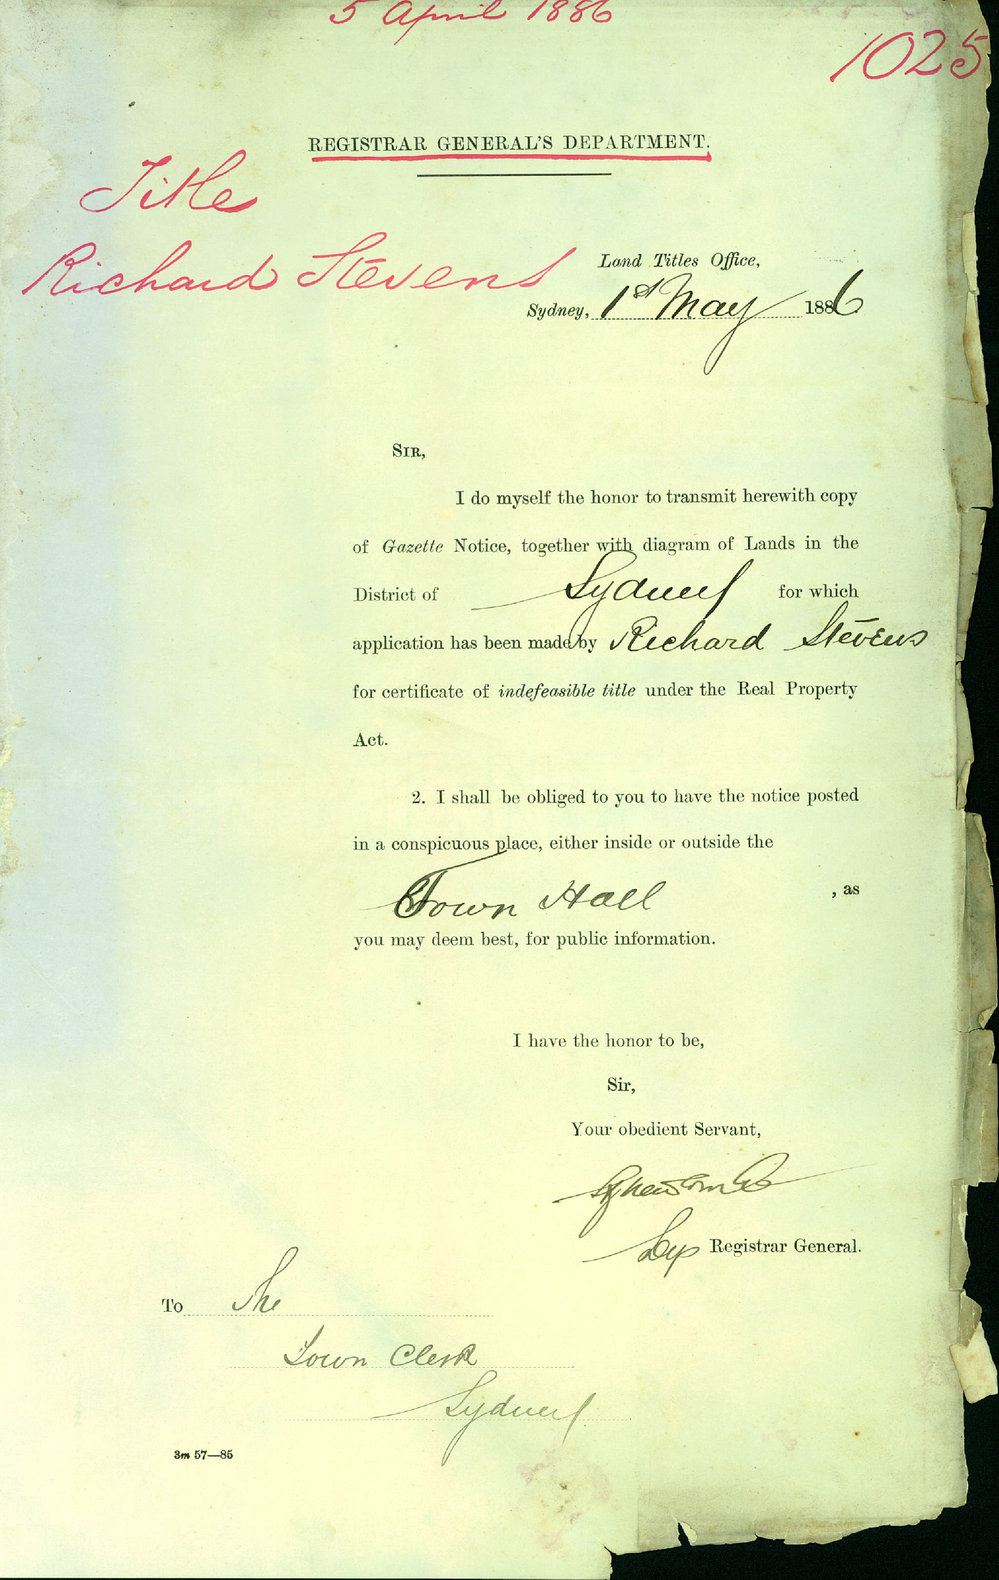 5 April 1886
1025
REGISTRAR GENERAL'S DEPARTMENT.
Title
Richard Stevens
Land Titles Office,
Sydney, 1st May 1886
SIR,
I do myself the honor to transmit herewith copy
of Gazette Notice, together with diagram of Lands in the
District of Sydney for which
application has been made by Richard Stevens
for certificate of indefeasible title under the Real Property
Act.
2. I shall be obliged to you to have the notice posted
in a conspicuous place, either inside or outside the
Town Hall , as
you may deem best, for public information.
I have the honor to be,
Sir,
Your obedient Servant,
Dep Registrar General.
To The
Town Clerk
Sydney
3m 57—85